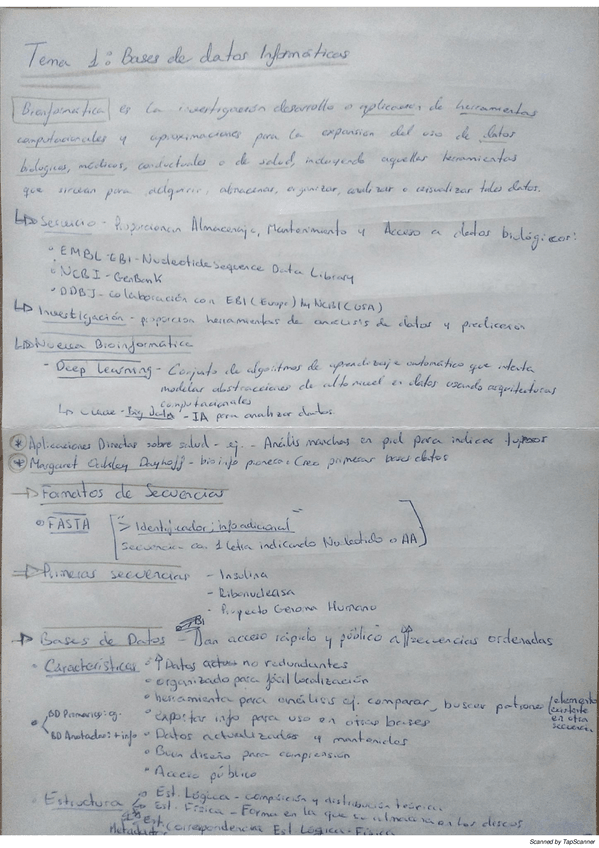 Tema 1: Bases de datos Informáticas
Bioinformática es la investigación desarrollo o aplicación de herramientas
computacionales y aproximaciones para la expansión del uso de datos
biológicos, médicos, conductuales o de salud, incluyendo aquellas herramientas
que sirvan para adquirir, almacenar, organizar, analizar o visualizar tales datos.
↳ Servicio - Proporcionan Almacenaje, Mantenimiento y Acceso a datos biológicos:
• EMBL-EBI - Nucleotide Sequence Data Library
• NCBI - GenBank
• DDBJ - colaboración con EBI (Europa) y NCBI (USA)
↳ Investigación - proporcion herramientas de análisis de datos y predicción
↳ Nueva Bioinformática
- Deep Learning - Conjunto de algoritmos de aprendizaje automático que intenta
modelar abstracciones de alto nivel en datos usando arquitecturas
computacionales
↳ clave - Big data - IA para analizar datos
* Aplicaciones Directas sobre salud - ej. - Análisis manchas en piel para indicar tumores
* Margaret Oakley Dayhoff - bioinfo pionera: Creo primeras bases datos
→ Formatos de Secuencias
• FASTA
"> Identificador; info adicional"
Secuencia con 1 letra indicando Nucleótido o AA
⇒ Primeras secuencias - Insulina
- Ribonucleasa
- Proyecto Genoma Humano
→ Bases de Datos - Dan acceso rápido y público a ↑ secuencias ordenadas
• Características • ↑ Datos activos no redundantes
• organizado para fácil localización
• herramienta para análisis ej. comparar, buscar patrones / elemento existente en otra secuencia
• BD Primarios: ej.
• exportar info para uso en otras bases
BD Anotados: + info
• Datos actualizados y mantenidos
• Buen diseño para comprensión
• Acceso público
• Estructura
Est. Lógica - composición y distribución teórica
Est. Física - Forma en la que se almacena en los discos
Est.
Correspondencias Est Lógica-Física
Scanned by TapScanner